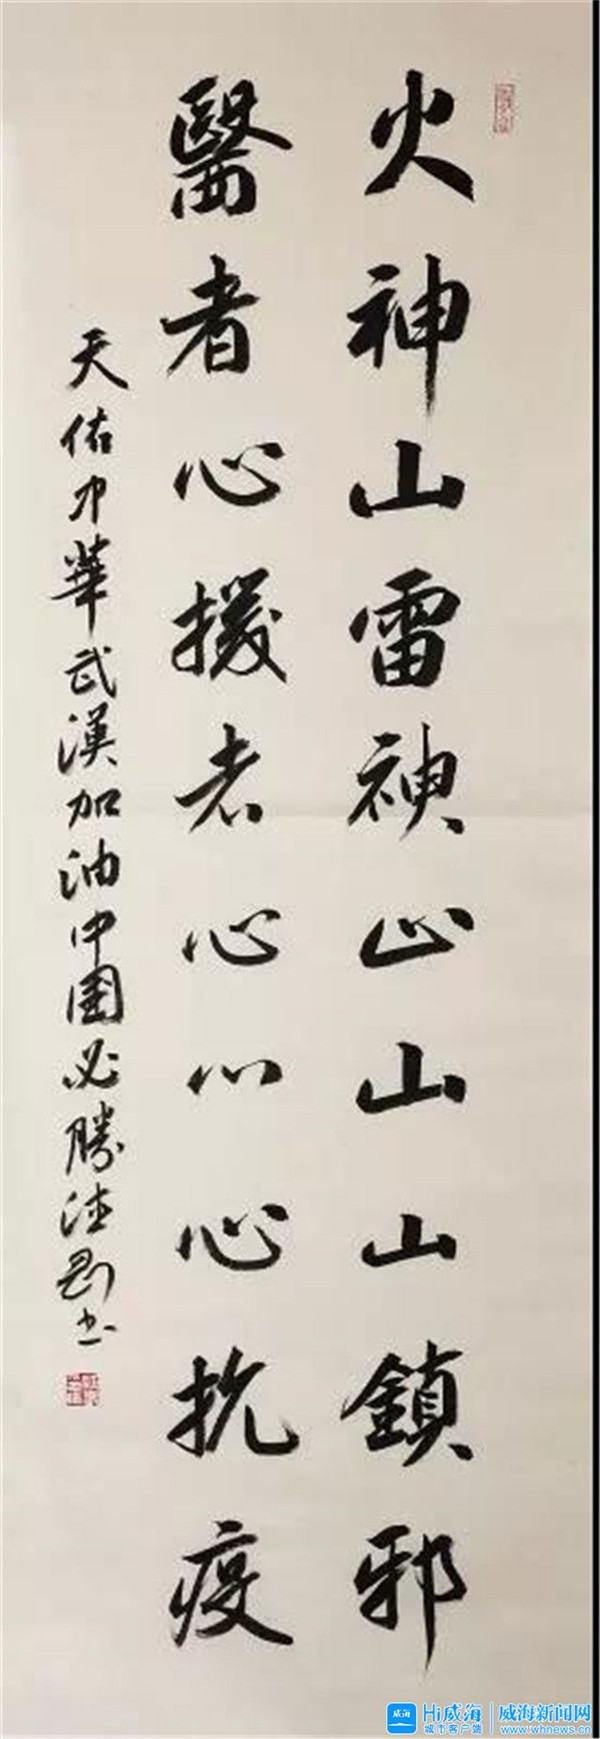 火神山雷神山山山鎮邪
醫者心援者心心心抗疫
天佑中華武漢加油中國必勝
Hi威海
城市客户端
威海新闻网
www.whnews.cn